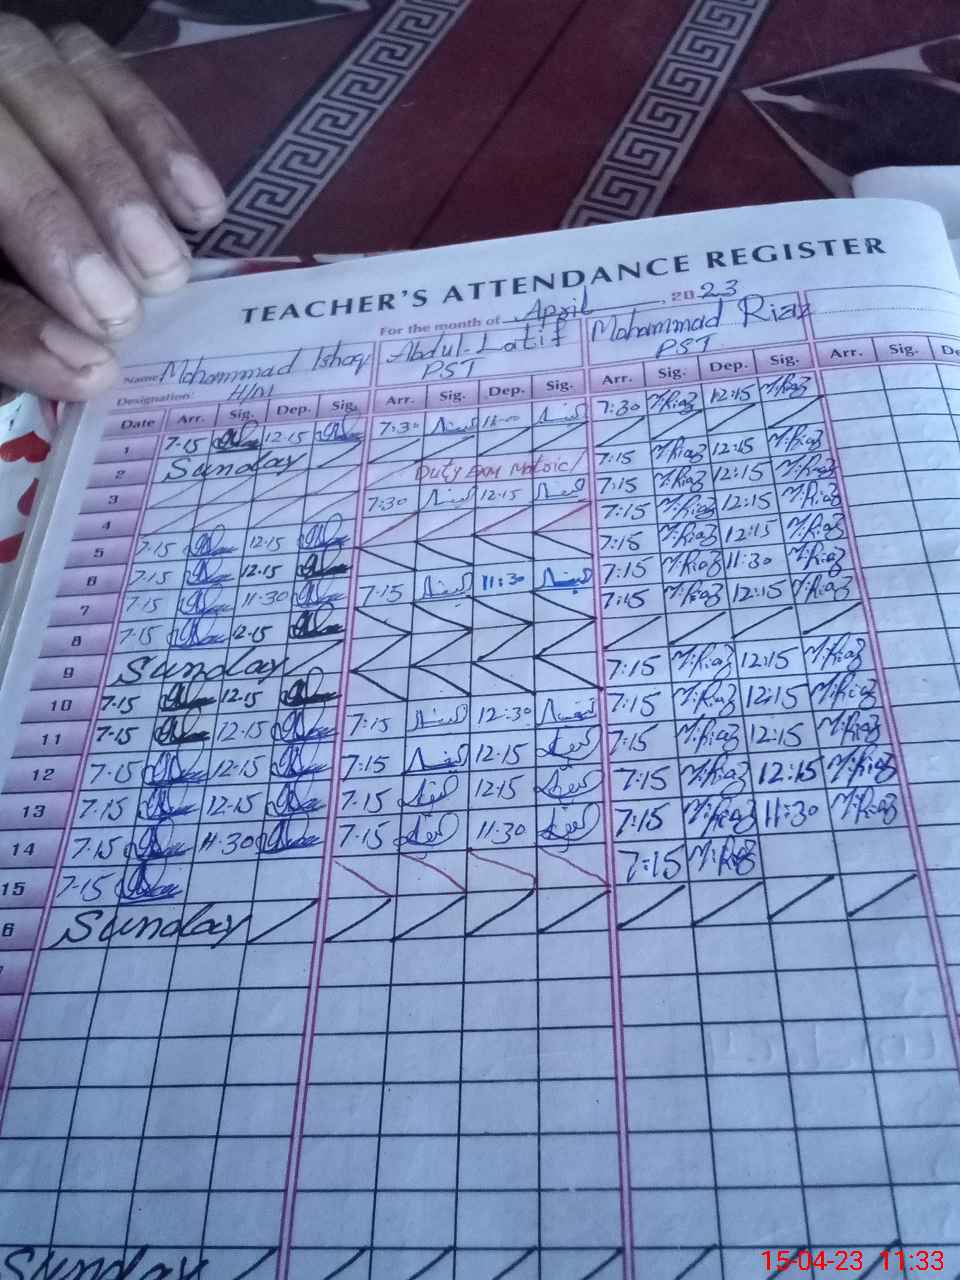 TEACHER'S ATTENDANCE REGISTER
For the month of April, 2023
Name: Mohammad Ishaq Abdul Latif Mohammad Riaz
Designation: H/M PST PST
Date Arr. Sig. Dep. Sig. Arr. Sig. Dep. Sig. Arr. Sig. Dep. Sig. Arr. Sig. De
1 7-15 12-15 7:30 7:30 M.Riaz 12:15 M.Riaz
2 Sunday
3 Duty Exam 7:15 M.Riaz 12:15 M.Riaz
4 7:30 12:15 7:15 M.Riaz 12:15 M.Riaz
5 7-15 12-15 7:15 M.Riaz 12:15 M.Riaz
6 7-15 12-15 7:15 M.Riaz 12:15 M.Riaz
7 7-15 11-30 7:15 11:30 7:15 M.Riaz 11:30 M.Riaz
8 7-15 12-15 7:15 M.Riaz 12:15 M.Riaz
9 Sunday
10 7-15 12-15 7:15 M.Riaz 12:15 M.Riaz
11 7-15 12-15 7:15 12:30 7:15 M.Riaz 12:15 M.Riaz
12 7-15 12-15 7:15 12-15 7:15 M.Riaz 12:15 M.Riaz
13 7-15 12-15 7-15 12-15 7:15 M.Riaz 12:15 M.Riaz
14 7-15 11-30 7-15 11-30 7:15 M.Riaz 11:30 M.Riaz
15 7-15 7:15 M.Riaz
6 Sunday
Sunday
15-04-23 11:33